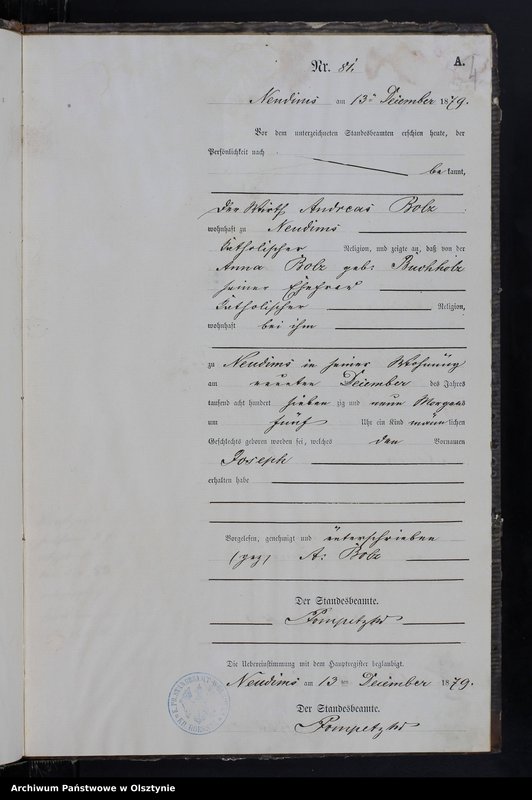 Nr. 81.
A.
Neudims am 13ten Dezember 1879.
Vor dem unterzeichneten Standesbeamten erschien heute, der
Persönlichkeit nach
bekannt,
der Wirth Andreas Bolz
wohnhaft zu Neudims
katholischer Religion, und zeigte an, daß von der
Anna Bolz geb: Buchholz
seiner Ehefrau
katholischer Religion,
wohnhaft bei ihm
zu Neudims in seiner Wohnung
am neunten Dezember des Jahres
tausend acht hundert siebenzig und neun Morgens
um fünf Uhr ein Kind männlichen
Geschlechts geboren worden sei, welches den Vornamen
Joseph
erhalten habe
Vorgelesen, genehmigt und unterschrieben
(gez) A: Bolz
Der Standesbeamte.
Die Uebereinstimmung mit dem Hauptregister beglaubigt.
Neudims am 13ten Dezember 1879.
Der Standesbeamte.
Archiwum Państwowe w Olsztynie